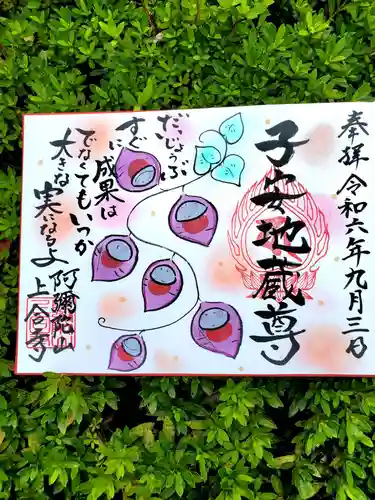 奉拝 令和六年九月三日
子安地蔵尊
だいじょうぶ
すぐに成果は
でなくてもいつか
大きな実になるよ
阿彌陀山
上合寺